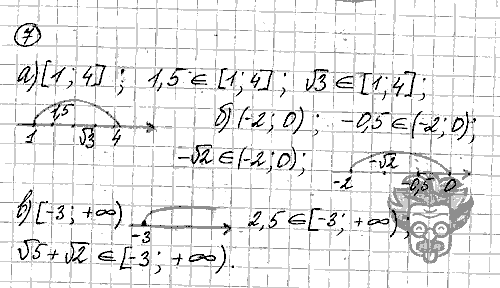 7
а) [1; 4] ; 1,5 ∈ [1; 4] ; √3 ∈ [1; 4] ;
1,5
1 √3 4
б) (-2; 0) ; -0,5 ∈ (-2; 0) ;
-√2 ∈ (-2; 0) ;
-√2
-2 -0,5 0
в) [-3; +∞)
-3
2,5 ∈ [-3; +∞) ;
√5 + √2 ∈ [-3; +∞).